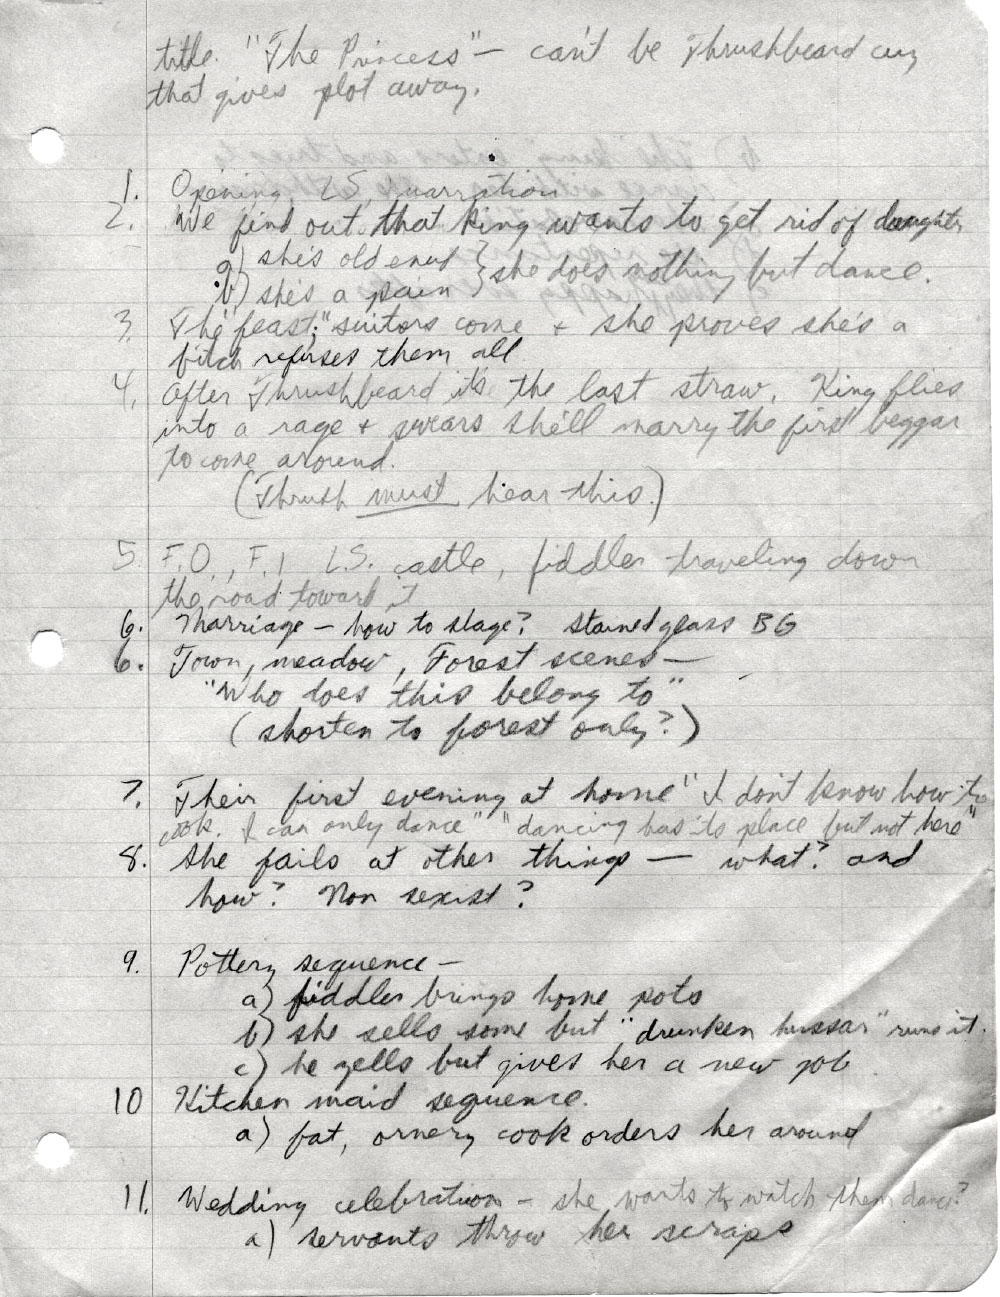 title. "The Princess" — can't be Thrushbeard cuz
that gives plot away.
1. Opening LS, narration
2. We find out that king wants to get rid of daughter
a) she's old enuf } she does nothing but dance.
b) she's a pain
3. The "feast;" suitors come + she proves she's a
bitch refuses them all
4. After Thrushbeard it's the last straw. King flies
into a rage + swears she'll marry the first beggar
to come around.
(Thrush must hear this.)
5. F.O., F.I LS. castle, fiddler traveling down
the road toward it
6. Marriage — how to stage? stained glass BG
6. Town, meadow, Forest scenes —
"Who does this belong to"
(shorten to forest only?)
7. Their first evening at home "I don't know how to
cook. I can only dance" "dancing has its place but not here"
8. She fails at other things — what? and
how? Non sexist?
9. Pottery sequence —
a) fiddler brings home pots
b) she sells some but "drunken hussar" runs it.
c) he yells but gives her a new job
10 Kitchen maid sequence.
a) fat, ornery cook orders her around
11. Wedding celebration — she wants to watch them dance?
a) servants throw her scraps